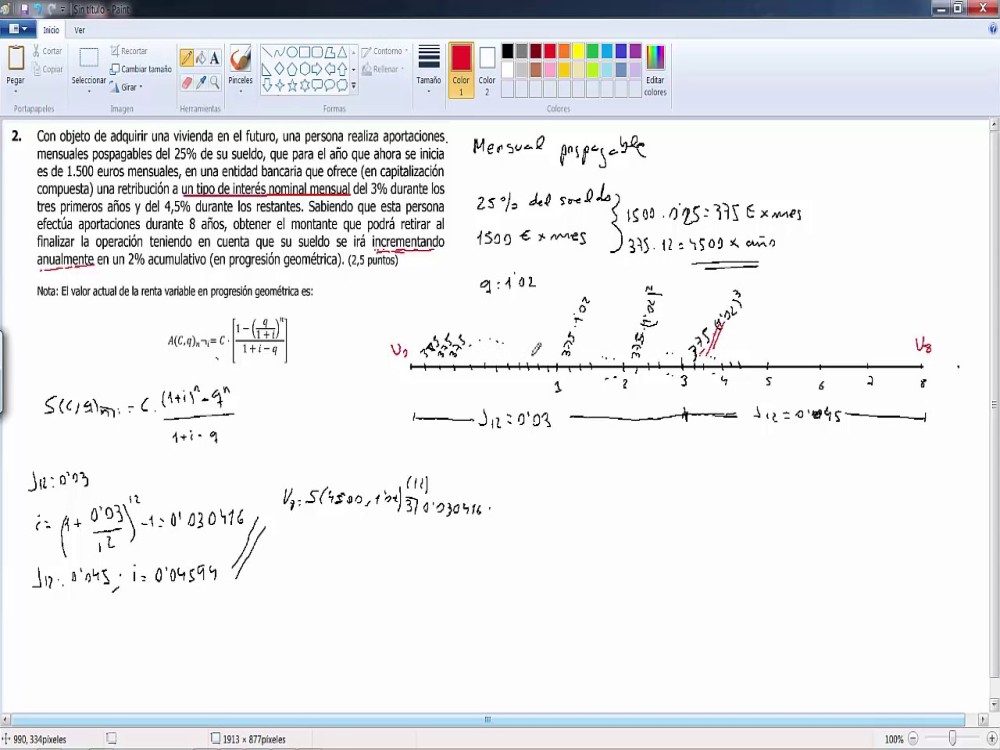 Sin título - Paint
Inicio Ver
Pegar
Cortar
Copiar
Portapapeles
Seleccionar
Recortar
Cambiar tamaño
Girar
Imagen
A
Herramientas
Pinceles
Contorno
Rellenar
Formas
Tamaño
Color 1
Color 2
Editar colores
Colores
2. Con objeto de adquirir una vivienda en el futuro, una persona realiza aportaciones
mensuales pospagables del 25% de su sueldo, que para el año que ahora se inicia
es de 1.500 euros mensuales, en una entidad bancaria que ofrece (en capitalización
compuesta) una retribución a un tipo de interés nominal mensual del 3% durante los
tres primeros años y del 4,5% durante los restantes. Sabiendo que esta persona
efectúa aportaciones durante 8 años, obtener el montante que podrá retirar al
finalizar la operación teniendo en cuenta que su sueldo se irá incrementando
anualmente en un 2% acumulativo (en progresión geométrica). (2,5 puntos)
Nota: El valor actual de la renta variable en progresión geométrica es:
A(C,q)n¬i = C · [1 - (q/1+i)^n / 1 + i - q]
S(C,q)n¬i = C · (1+i)^n - q^n / 1+i-q
Mensual pospagable
25% del sueldo
1500 € x mes
1500 · 0'25 = 375 € x mes
375 · 12 = 4500 x año
q = 1'02
375 375 375 ....
375 · 1'02
375 · (1'02)^2
375 (1'02)^3
V0 V8
1 2 3 4 5 6 7 8
J12 = 0'03 J12 = 0'045
J12 = 0'03
i = (1 + 0'03/12)^12 - 1 = 0'030416
J12 = 0'045 · i = 0'04594
V3 = S(4500, 1'02)(12) 3¬0'030416 ·
990, 334píxeles
1913 × 877píxeles
100%